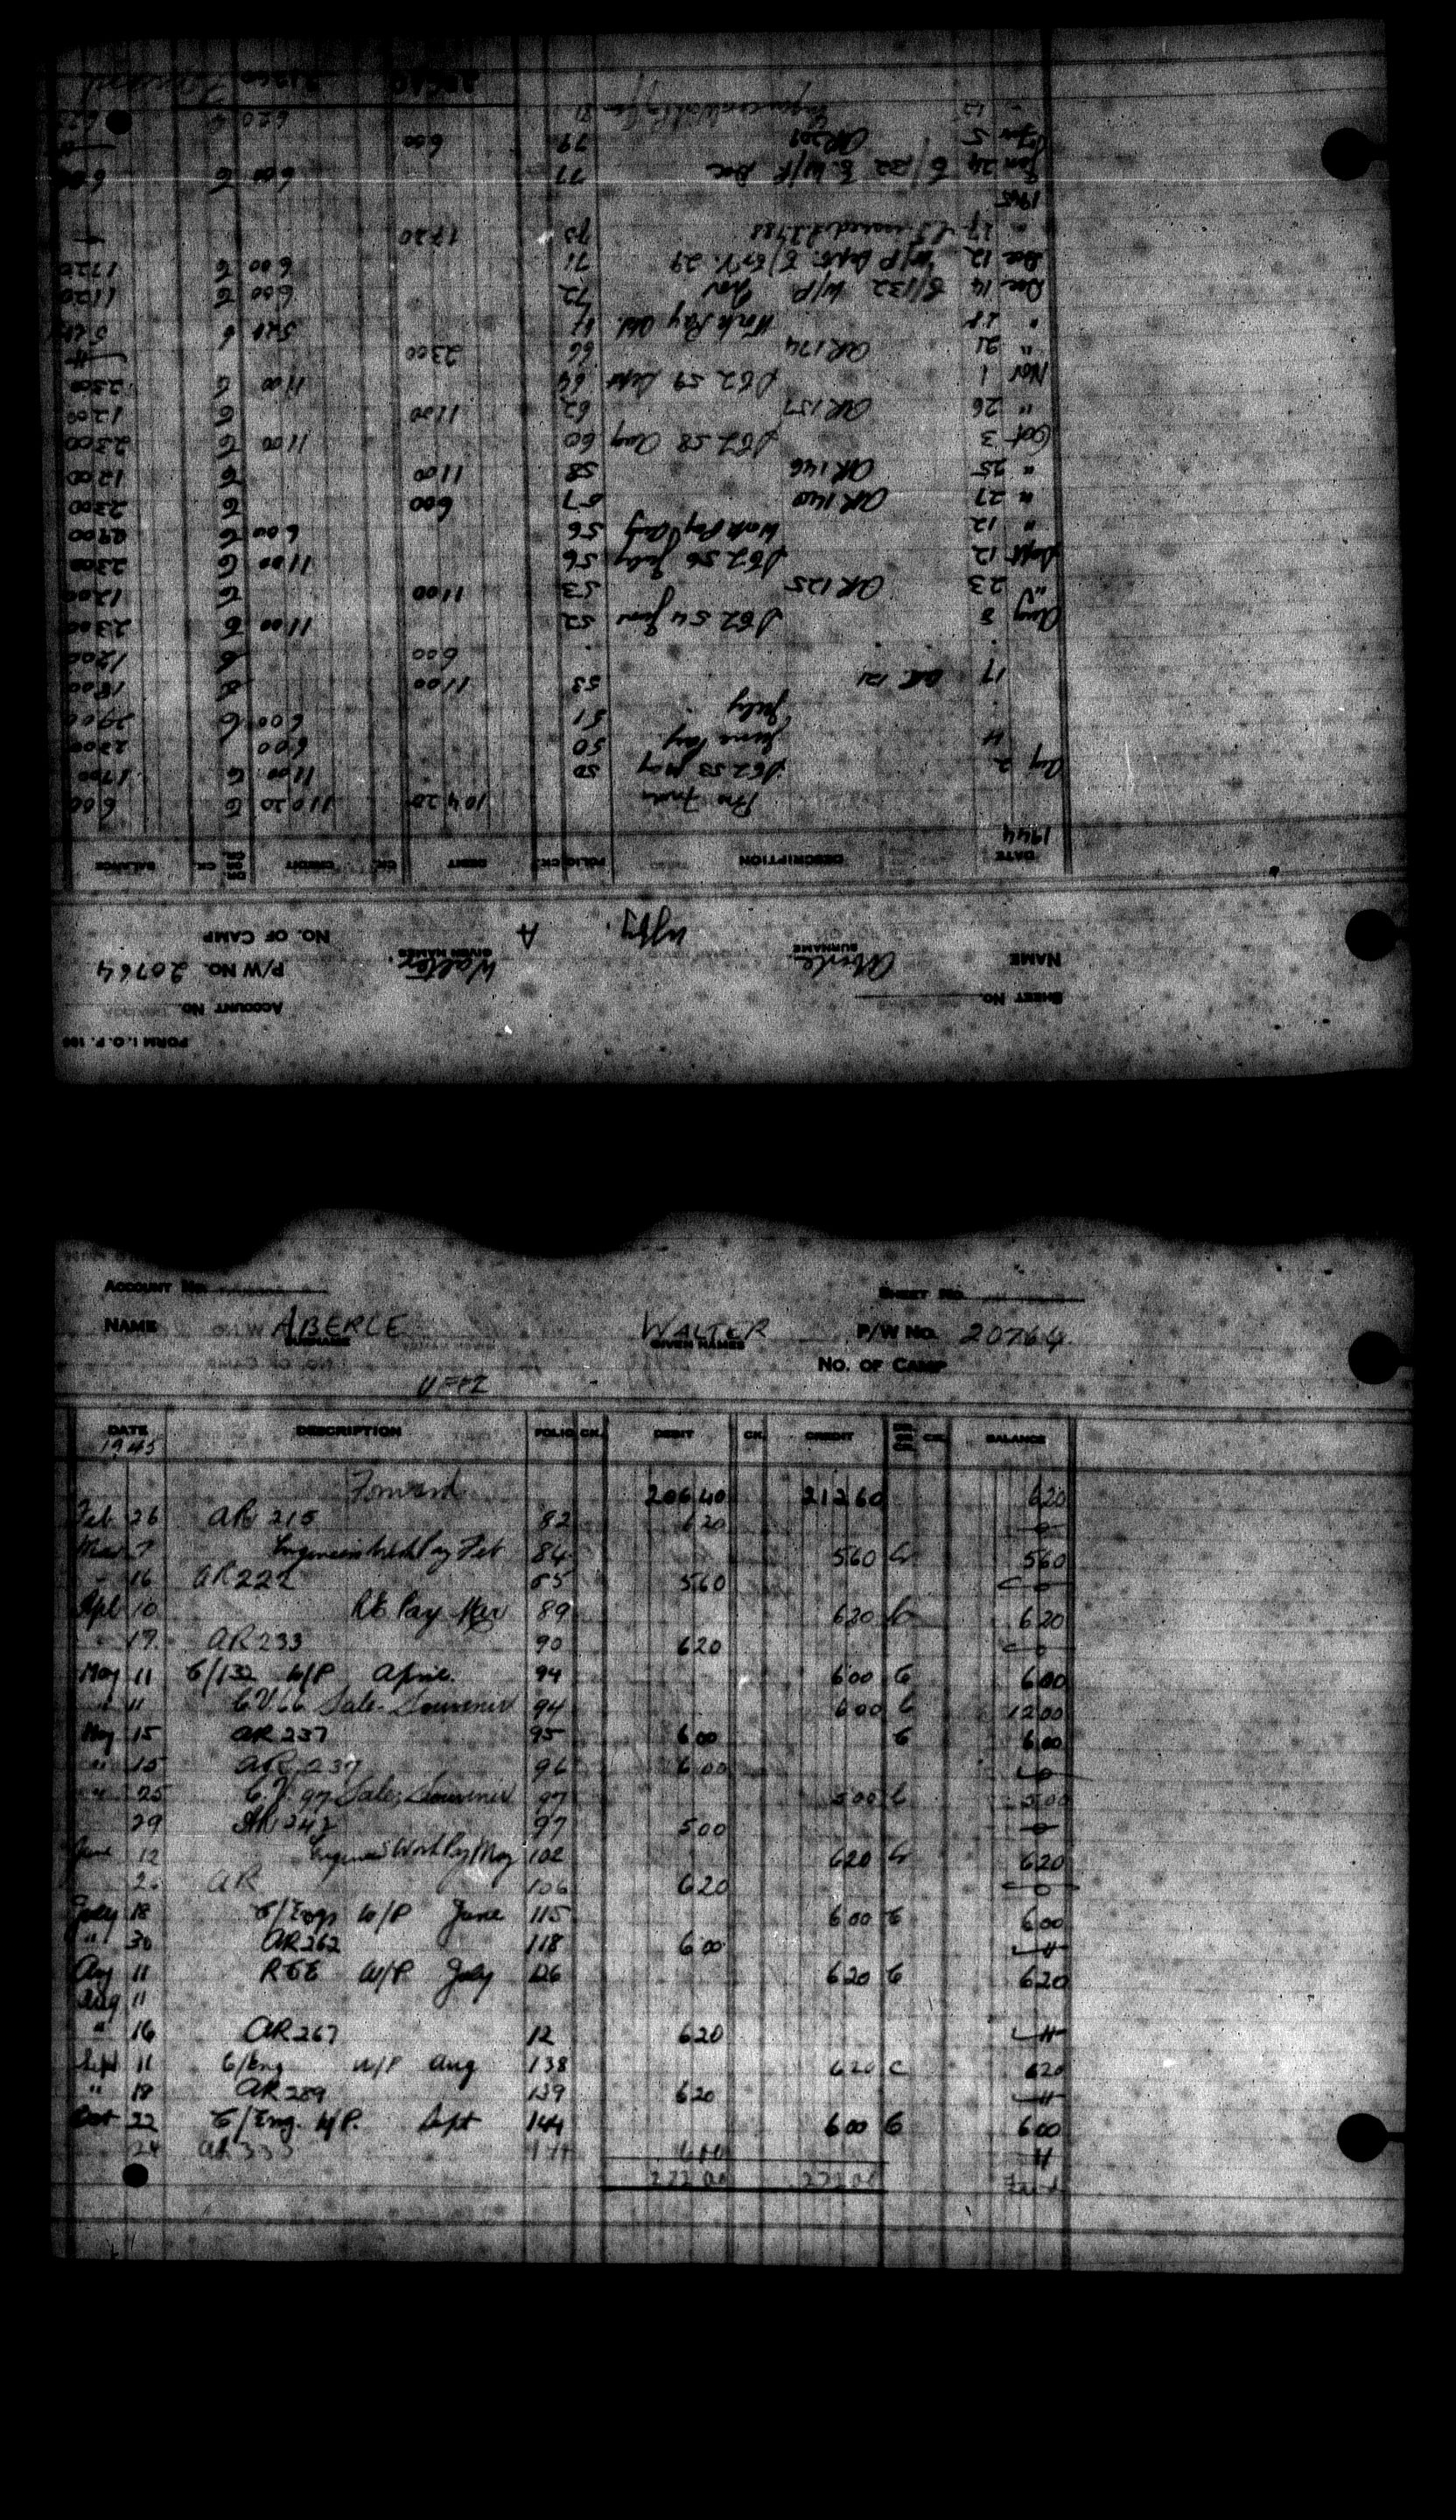 FORM I.O.P. 106
ACCOUNT NO.
SHEET NO.
NAME Aberle Walter P/W No. 20764
SURNAME GIVEN NAMES
Uffz. A NO. OF CAMP
DATE DESCRIPTION FOLIO CK. DEBIT CK. CREDIT DR. OR CR. CK. BALANCE
1944
104 20 110 20 C 6 00
Aug 2 D52 53 May 50 11 00 C 17 00
4 June Pay 50 6 00 23 00
July 51 6 00 C 29 00
17 AR 121 53 11 00 C 18 00
6 00 C 12 00
Aug 8 D52 54 June 52 11 00 C 23 00
" 23 AR 125 53 11 00 C 12 00
Sept 12 D52 56 July 56 11 00 C 23 00
" 12 Work Pay Aug 56 6 00 C 29 00
" 27 AR 140 57 6 00 C 23 00
" 25 AR 146 58 11 00 C 12 00
Oct 3 D52 58 Aug 60 11 00 C 23 00
" 26 AR 157 62 11 00 C 12 00
Nov 1 D52 59 Sept 64 11 00 C 23 00
" 21 AR 174 66 23 00
" 28 Work Pay Oct. 5 20 C 5 20
Dec 14 E/132 W/P Nov 72 6 00 C 11 20
Dec 12 W/P Sept. 71 6 00 C 17 20
" 27 73 17 20
1945
Jan 24 E/132 E. W/P Dec 77 6 00 C 6 00
5 AR 209 79 6 00
12 81 6 20 C 6 20
Forward
ACCOUNT NO.
SHEET NO.
NAME ABERLE WALTER P/W No. 20764
SURNAME GIVEN NAMES
NO. OF CAMP
UFFZ
DATE DESCRIPTION FOLIO CK. DEBIT CK. CREDIT DR. OR CR. CK. BALANCE
1945
Forward 206 40 212 60 6 20
Feb 26 AR 215 82 6 20 0
Mar 7 Engineers Work Pay Feb 84 5 60 Cr 5 60
" 16 AR 222 85 5 60 0
Apl 10 RE Pay Mar 89 6 20 Cr 6 20
" 19 AR 233 90 6 20 0
May 11 E/132 W/P April. 94 6 00 C 6 00
" 11 C.V. 66 Sale Souvenir 94 6 00 C 12 00
May 15 AR 237 95 6 00 C 6 00
" 15 AR 237 96 6 00 0
" 25 C.V. 97 Sales Souvenir 97 5 00 C 5 00
29 AR 242 97 5 00 0
June 12 Engineers Work Pay May 102 6 20 Cr 6 20
26 AR 106 6 20 0
July 18 E/Engs W/P June 115 6 00 C 6 00
" 30 AR 262 118 6 00
Aug 11 REE W/P July 126 6 20 C 6 20
Aug 11
" 16 AR 267 12 6 20
Sept 11 E/Eng W/P Aug 138 6 20 C 6 20
" 18 AR 289 139 6 20
Oct 22 E/Eng. W/P. Sept 144 6 00 C 6 00
24 AR 333 6 00
272 00 272 00